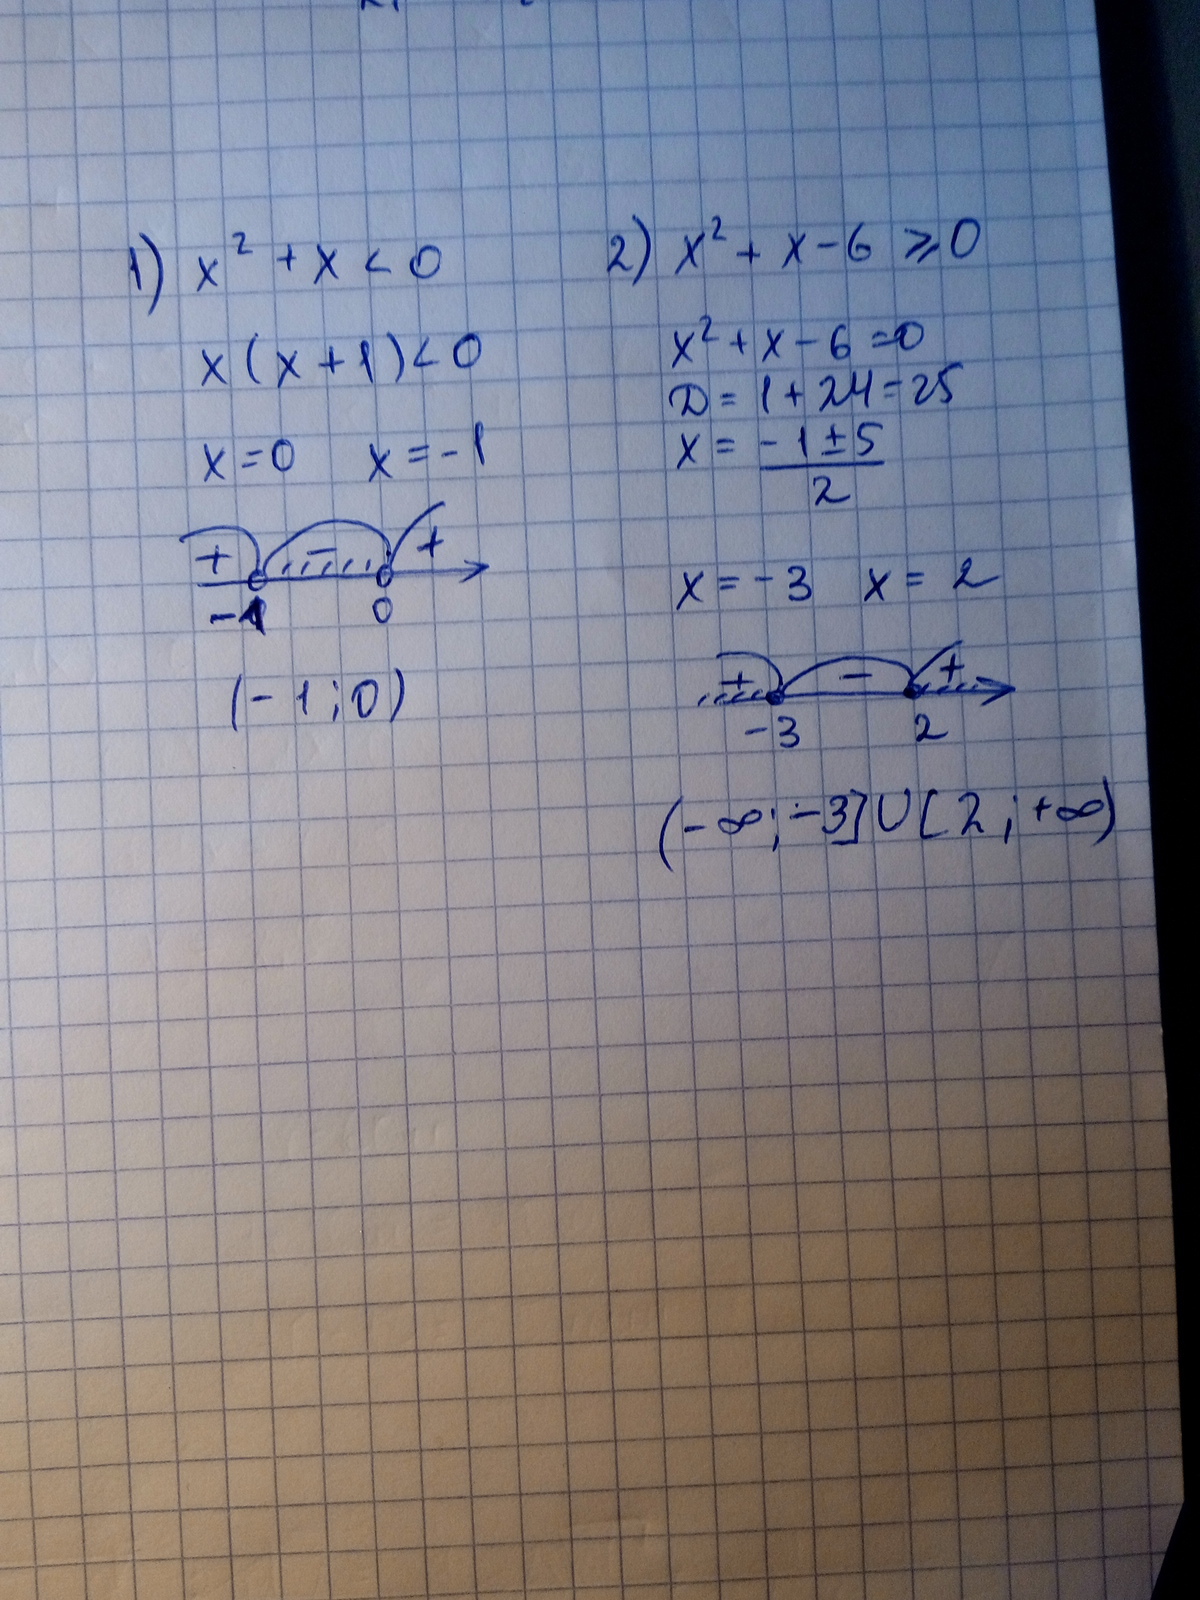 1) x² + x < 0
x(x + 1) < 0
x = 0 x = -1
+ - +
-1 0
(-1; 0)
2) x² + x - 6 ⩾ 0
x² + x - 6 = 0
D = 1 + 24 = 25
x = (-1 ± 5)/2
x = -3 x = 2
+ - +
-3 2
(-∞; -3] ∪ [2; +∞)